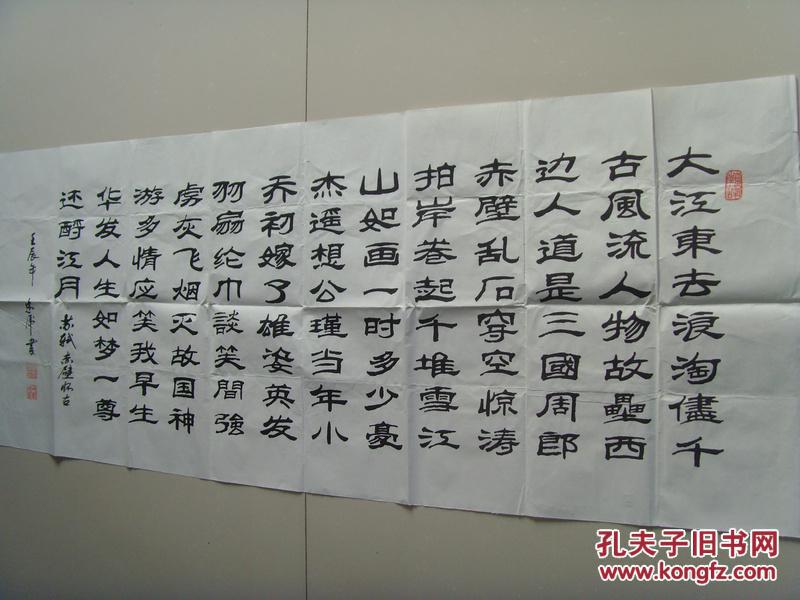 大江東去浪淘儘千
古風流人物故壘西
边人道是三國周郎
赤壁乱石穿空惊涛
拍岸卷起千堆雪江
山如画一时多少豪
杰遥想公瑾当年小
乔初嫁了雄姿英发
羽扇纶巾談笑間強
虏灰飞烟灭故国神
游多情应笑我早生
华发人生如梦一尊
还酹江月
苏轼赤壁怀古
壬辰年
書
孔夫子旧书网